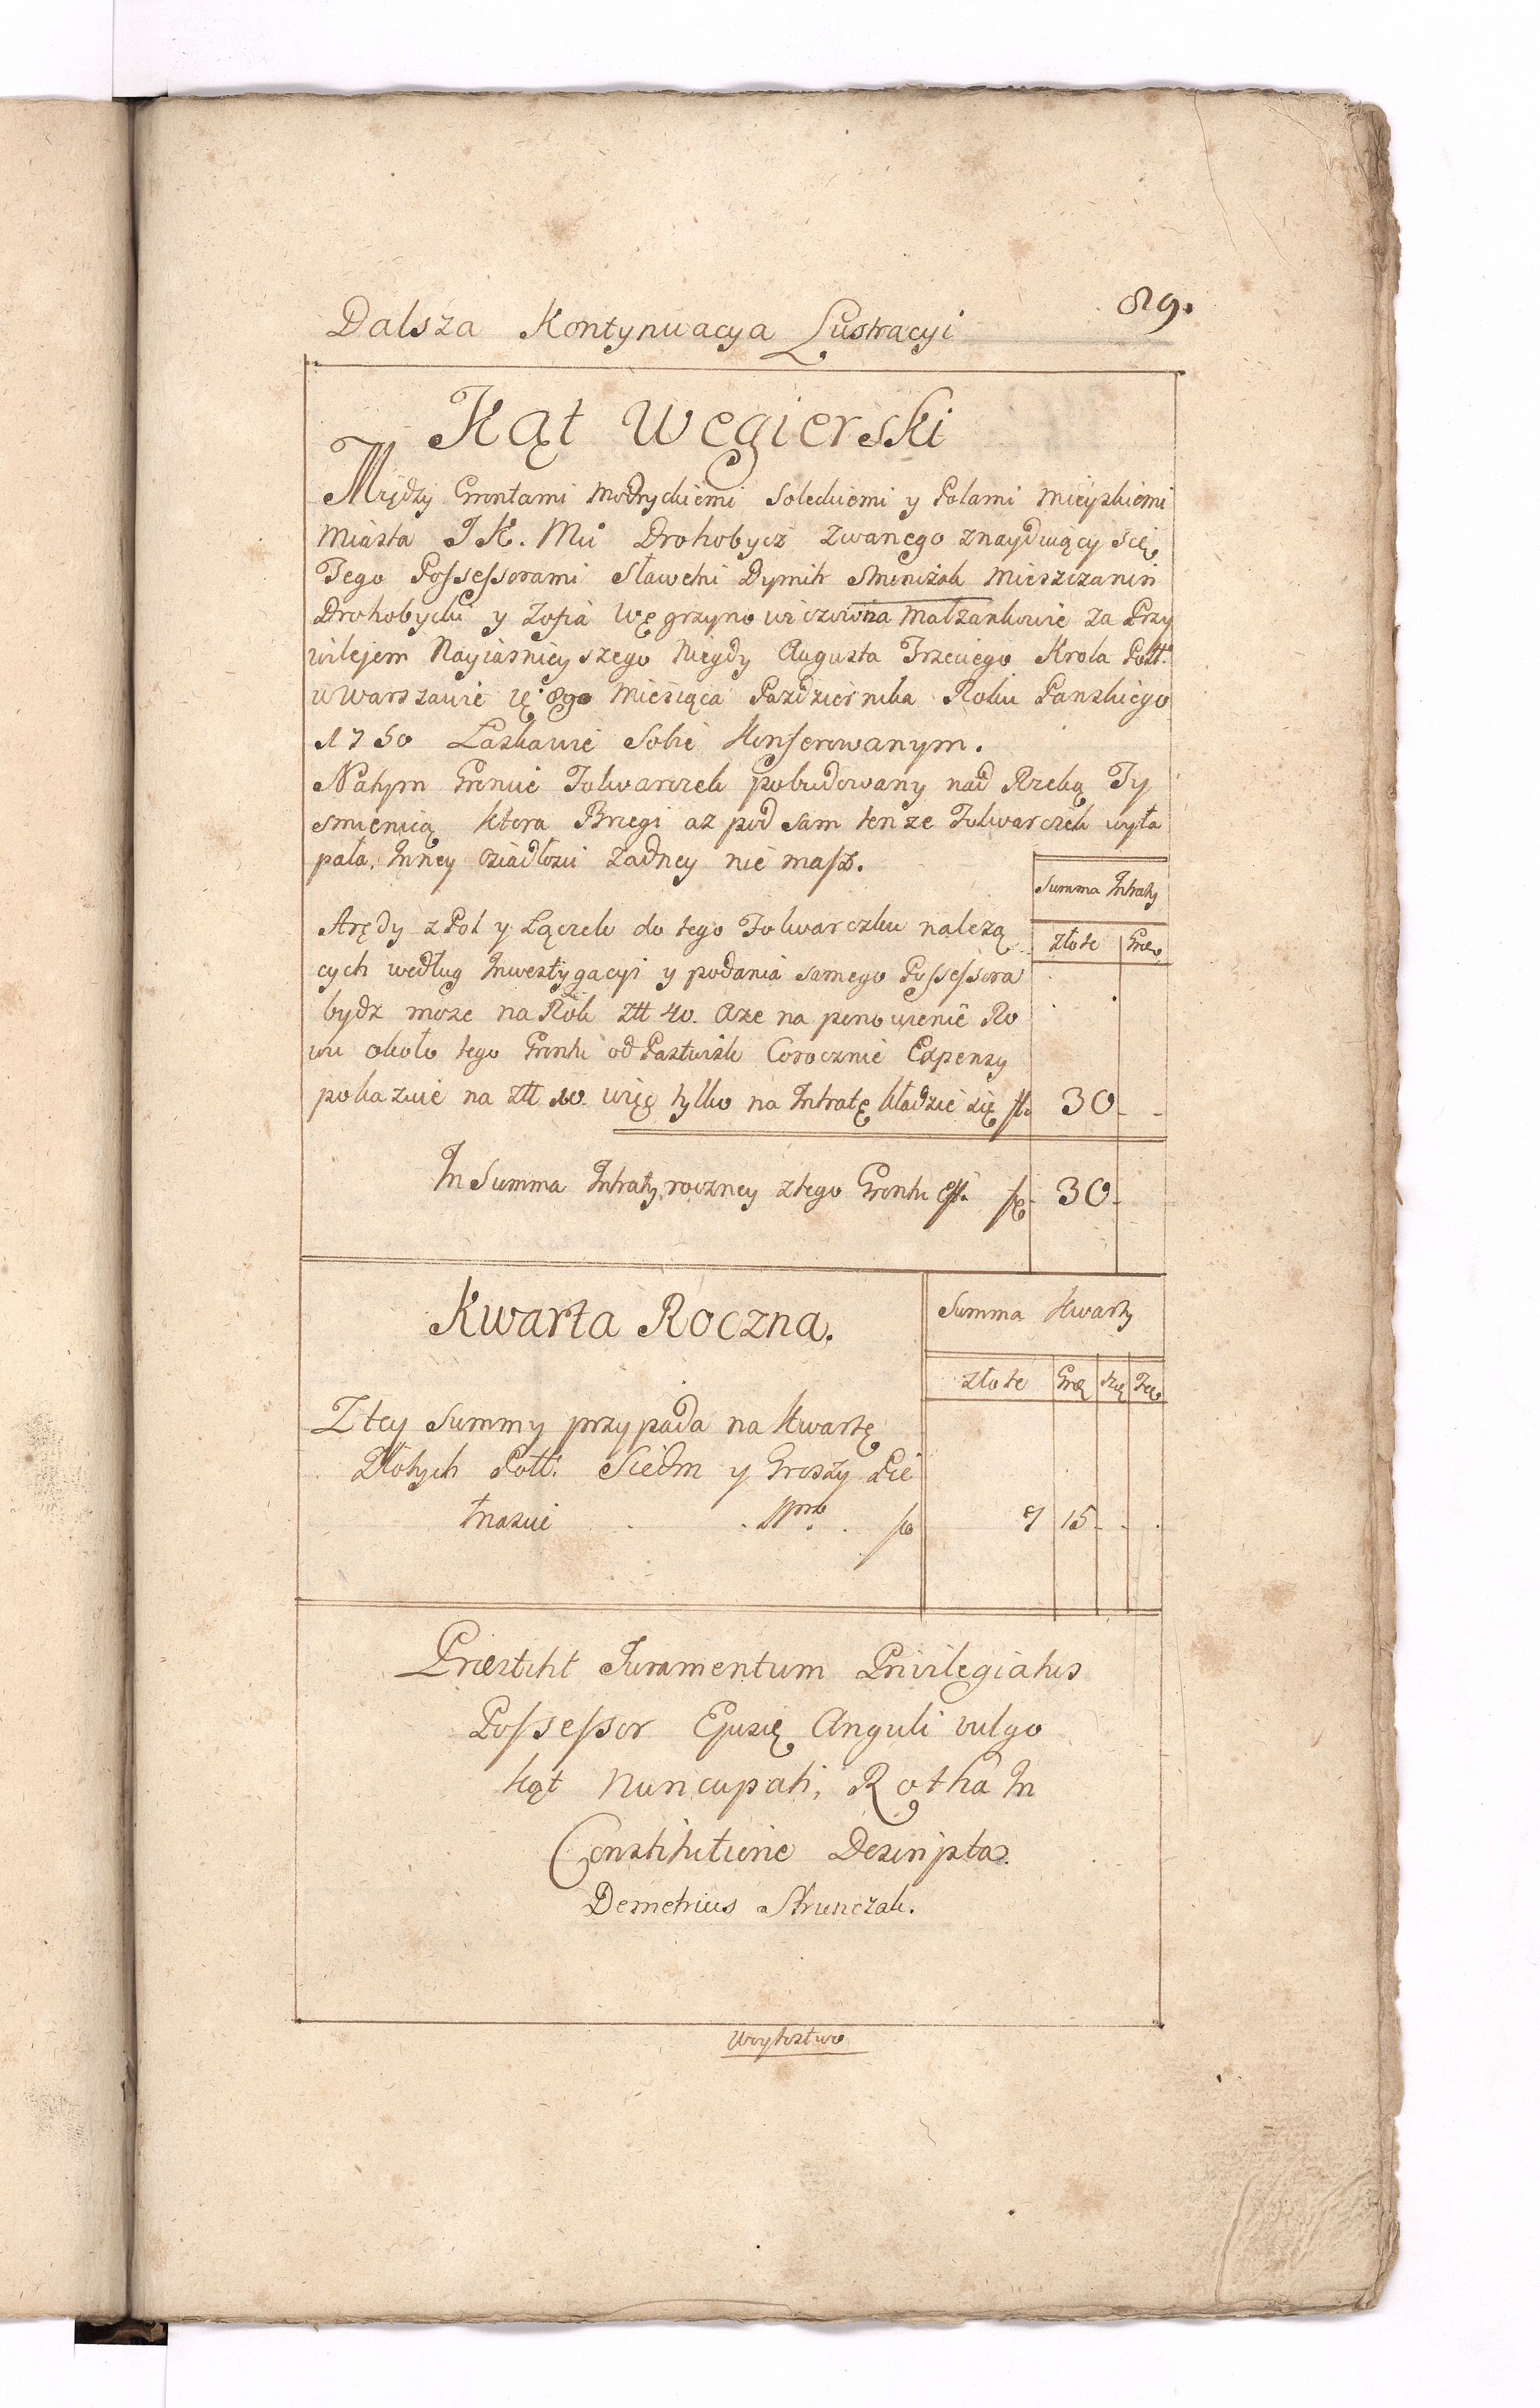 89.
Dalsza Kontynuacya Lustracyi
Kąt Węgierski
Między Gruntami Modryckiemi Soleckiemi y Polami Mieyskiemi
Miasta J K. Mci Drohobycz zwanego znayduiący się
Tego Possessorami Sławetni Dymitr Mieszczanin
Drohobycki y Zofia Węgrzynowiczowna Małzankowie za Przy
wilejem Nayiasnieyszego Niegdy Augusta Trzeciego Krola Poll.
w Warszawie Miesiąca Pazdziernika Roku Panskiego
1750 Laskawie Sobie Konferowanym.
Natym Gruncie Folwarczek pobudowany nad Rzeką Ty
smienicą ktora Brzegi az pod sam tenze Folwarczek wyła
pała. Inney Osiadłosci zadney nie masz.
Summa Intraty
Złote Gro
Arędy z Pol y Łączek do tego Folwarczku nalezą
cych według Inwestygacyi y podania samego Possessora
bydz moze na Rok Złł 40. Aze na ponowienie Ro
wu około tego Gruntu od Pastwisk Corocznie Expensy
pokazuie na Złł 10. więc tylko na Intratę kładzie się fl. 30 - -
In Summa Intraty roczney ztego Gruntu est. fl. 30 -
Kwarta Roczna.
Summa Kwarty
Złote Gro Szę Fęo
Z tey Summy przypada na Kwartę
Złotych Poll. Siedm y Groszy Pie
tnascie fl 7 15 - - .
Præstitit Juramentum Privilegiatus
Possessor Ejusdę Anguli vulgo
kąt Nuncupati, Rotha In
Constitutione Descripta.
Demetrius Strunczak.
Woytostwo